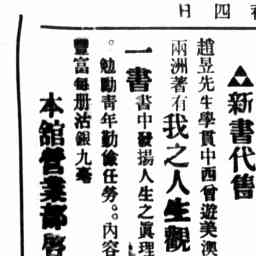 有四日
新書代售
趙昱先生學貫中西曾遊美澳
兩洲著有我之人生觀
一書書中發揚人生之眞理
。勉勵青年勤儉任務。。內容
豐富每册沽銀九毫
本舘營業部啓